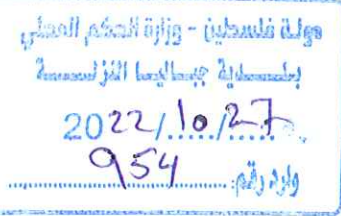 دولة فلسطين - وزارة الحكم المحلي
بلدية جباليا النزلة
2022/10/27
وارد رقم: 954